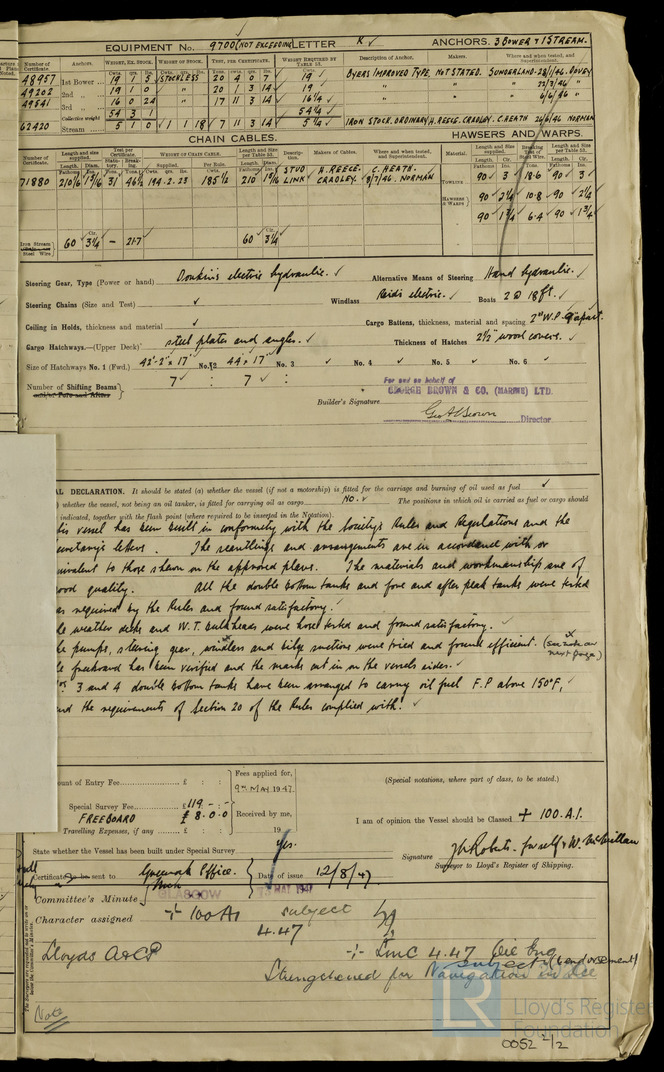 EQUIPMENT No. 9700 (NOT EXCEEDING) LETTER K ✓ ANCHORS. 3 BOWER + 1 STREAM.
Number of Certificate. Anchors. WEIGHT, EX. STOCK. WEIGHT OF STOCK. TEST, PER CERTIFICATE. WEIGHT REQUIRED BY TABLE 53. Description of Anchor. Makers. Where and when tested, and Superintendent.
48957 1st Bower 19 1 5 STOCKLESS 20 4 0 7 19 BYERS IMPROVED TYPE, NOT STATED. SUNDERLAND 28/1/46 DOVEY
49202 2nd " 19 1 0 " 20 1 3 14 19 " " " 22/3/46 "
49841 3rd " 16 0 24 " 17 11 3 14 16¼ " " " 6/6/46 "
Collective weight 54 3 1 54¼
62420 Stream 5 1 0 1 1 18 7 11 3 14 5¼ IRON STOCK. ORDINARY H. REECE. CRADLEY. C. HEATH 26/6/46 NORMAN
CHAIN CABLES. HAWSERS AND WARPS.
Number of Certificate. Length and size supplied. Test per Certificate. WEIGHT OF CHAIN CABLE. Length and size per Table 53. Description. Makers of Cables. Where and when tested, and Superintendent. Material. Length and size supplied. Breaking Test of Steel Wire. Length and size per Table 53.
71880 210/6 1 9/16 31 46½ 194.2.23 185½ 210 1 9/16 STUD LINK H. REECE. CRADLEY. C. HEATH. 8/7/46. NORMAN TOWLINE 90 3 18.6 90 3
HAWSERS & WARPS 90 2¼ 10.8 90 2¼
90 1¾ 6.4 90 1¾
Iron Stream Steel Wire 60 3¼ – 21.7 60 3¼
Steering Gear, Type (Power or hand) Donkin's electric hydraulic. ✓ Alternative Means of Steering Hand hydraulic. ✓
Steering Chains (Size and Test) ✓ Windlass Reids electric. ✓ Boats 2 @ 18 ft. ✓
Ceiling in Holds, thickness and material ✓ Cargo Battens, thickness, material and spacing 2" W.P. 9" apart.
Cargo Hatchways.—(Upper Deck) steel plates and angles. ✓ Thickness of Hatches 2½" wood covers. ✓
Size of Hatchways No. 1 (Fwd.) 42'-2" x 17' No. 2 44 x 17' No. 3 ✓ No. 4 ✓ No. 5 ✓ No. 6 ✓
Number of Shifting Beams 7 ✓ : 7 ✓ :
For and on behalf of
GEORGE BROWN & CO. (MARINE) LTD.
Builder's Signature Geo A Brown Director
AL DECLARATION. It should be stated (a) whether the vessel (if not a motorship) is fitted for the carriage and burning of oil used as fuel ✓
) whether the vessel, not being an oil tanker, is fitted for carrying oil as cargo NO. ✓ The positions in which oil is carried as fuel or cargo should
indicated, together with the flash point (where required to be inserted in the Notation).
his vessel has been built in conformity with the Society's Rules and Regulations and the
ecretary's letters. The scantlings and arrangements are in accordance with or
uivalent to those shewn on the approved plans. The materials and workmanship are of
ood quality. All the double bottom tanks and fore and after peak tanks were tested
as required by the Rules and found satisfactory. ✓
he weather decks and W.T. Bulkheads were hose tested and found satisfactory. ✓
he pumps, steering gear, windlass and bilge suctions were tried and found efficient. (see note on next page)
he freeboard has been verified and the marks cut in on the vessels sides. ✓
os. 3 and 4 double bottom tanks have been arranged to carry oil fuel F.P above 150°F, ✓
nd the requirements of Section 20 of the Rules complied with. ✓
ount of Entry Fee £ : : Fees applied for, (Special notations, where part of class, to be stated.)
9TH MAY 1947.
Special Survey Fee £ 119 - : -
FREEBOARD £ 8.0.0 Received by me, I am of opinion the Vessel should be Classed + 100.A.1.
Travelling Expenses, if any £ : : 19
State whether the Vessel has been built under Special Survey yes. Signature J W Roberts. for self & W. McMillan
Surveyor to Lloyd's Register of Shipping.
Certificate to be sent to Greenock Office. Date of issue 12/8/47.
Committee's Minute GLASGOW MAY 1947
Character assigned + 100 A1 subject
4.47
Lloyds A&CP + LMC 4.47 Oil Eng
subject (& endorsement)
Strengthened for Navigation in Ice
Note
Lloyd's Register
Foundation
0052 2/2